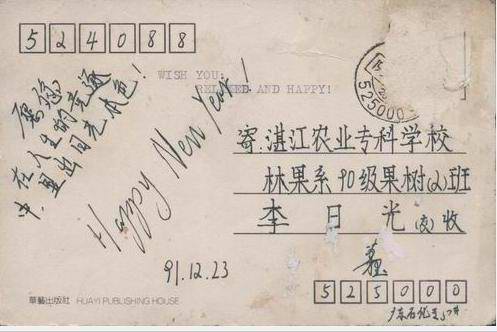 524088
WISH YOU:
RELAXED AND HAPPY!
525000
愿您
在人生的竞逐
中,显出日光本色!
Happy New Year!
91.12.23
寄:湛江农业专科学校
林果系90级果树(2)班
李日光(友)收
525000
華藝出版社 HUAYI PUBLISHING HOUSE